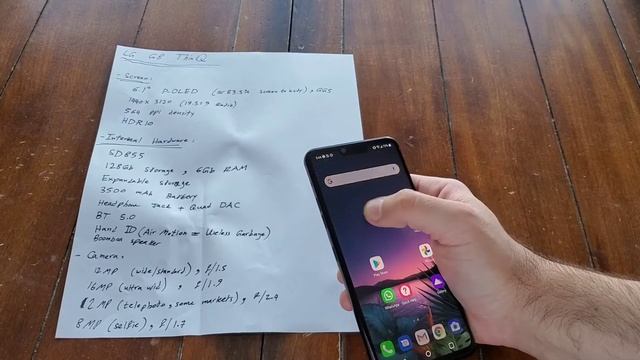 LG G8 ThinQ
- Screen:
6.1" P-OLED (≈ 83.5% screen to body), GG5
1440 x 3120 (19.5:9 Ratio)
564 ppi density
HDR10
- Internal Hardware:
SD855
128Gb storage, 6Gb RAM
Expandable storage
3500 mAh Battery
Headphone Jack + Quad DAC
BT 5.0
Hand ID (Air Motion = Useless Garbage)
Boombox speaker
- Camera:
12MP (wide/standard), f/1.5
16MP (ultra wide), f/1.9
12MP (telephoto, some markets), f/2.4
8MP (selfie), f/1.7
Play Store
WhatsApp